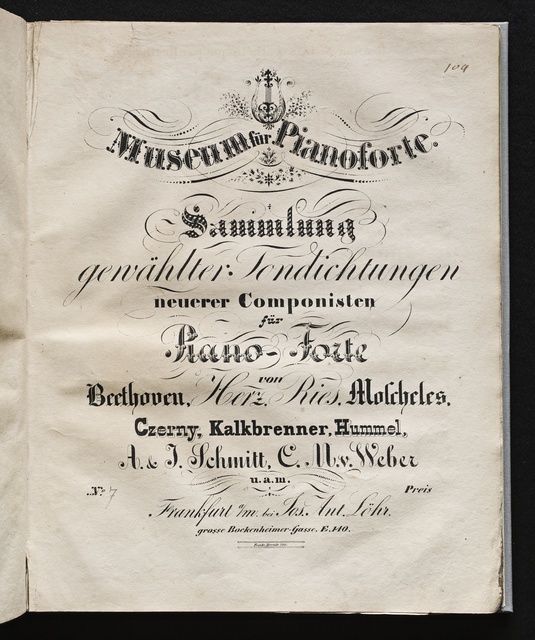 109
Museum für Pianoforte.
Sammlung
gewählter Tondichtungen
neuerer Componisten
für
Piano-Forte
von
Beethoven, Herz, Ries, Moscheles,
Czerny, Kalkbrenner, Hummel,
A. & J. Schmitt, C. M. v. Weber
u. a. m.
No. 7 Preis
Frankfurt a/m. bei Jos. Ant. Löhr.
grosse Bockenheimer-Gasse. E. 140.